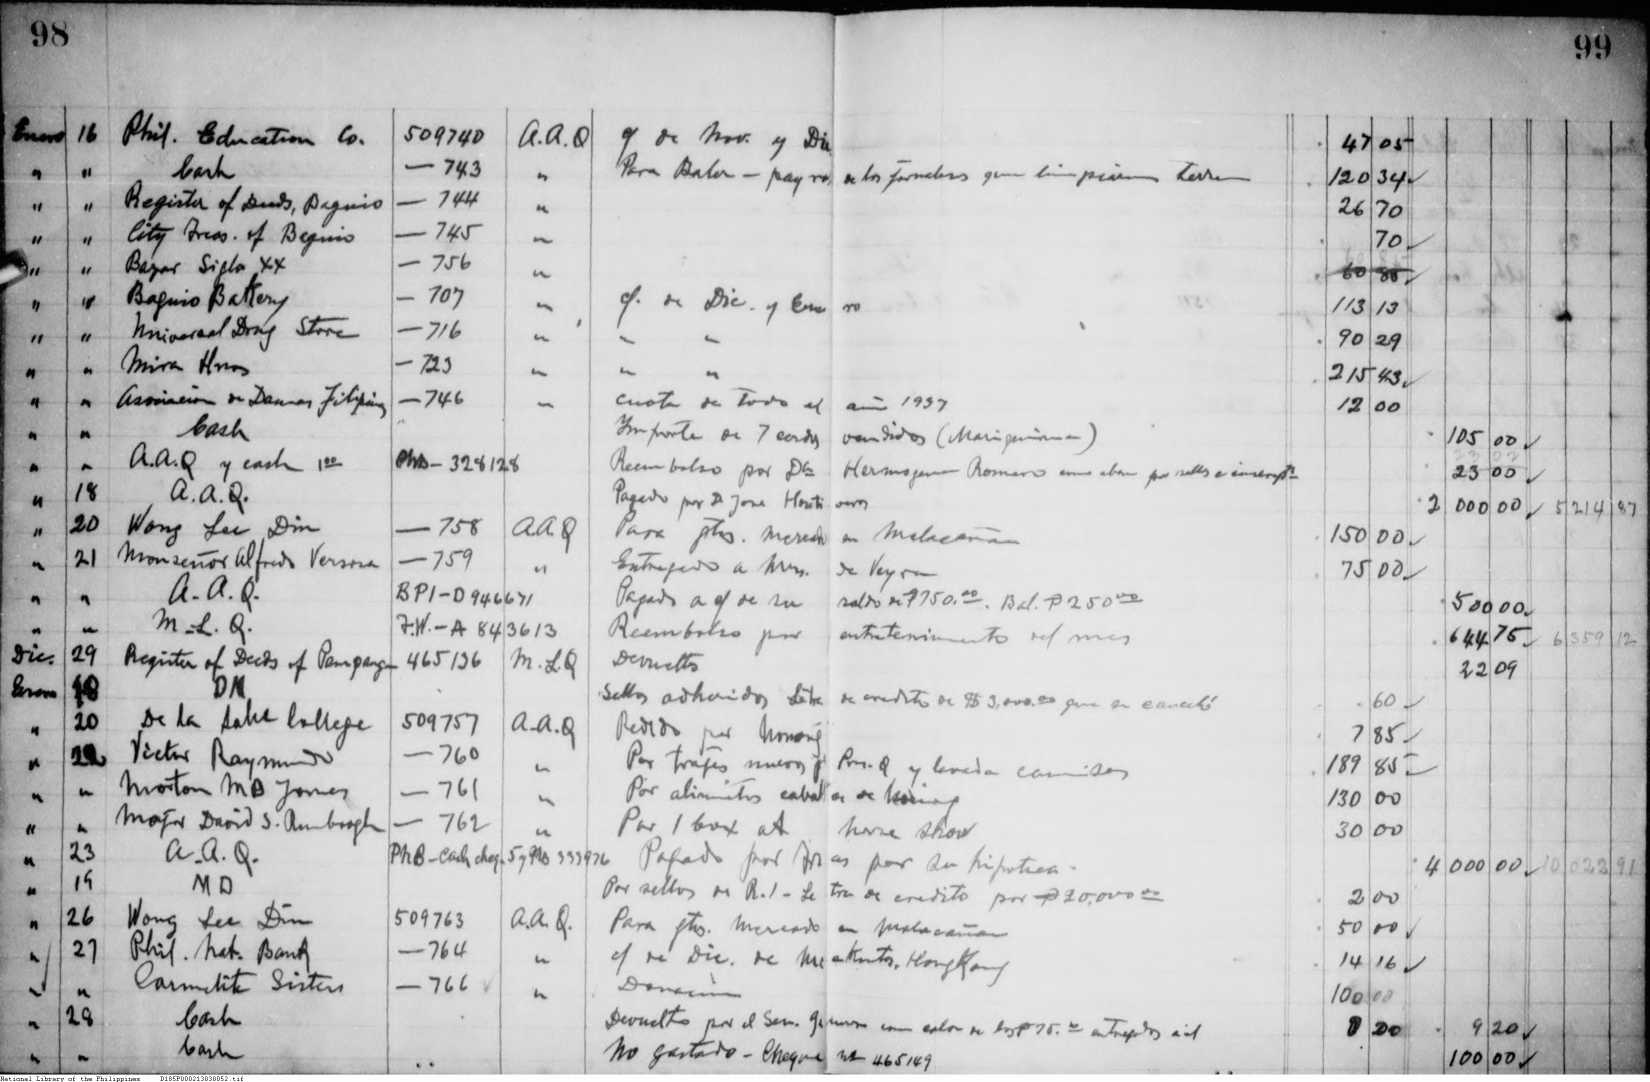 98 99
Enero 16 Phil. Education Co. 509740 A.A.Q c/ de Nov. y Dic 47 05
" " Cash — 743 " Para Baler — payroll de los jornaleros que limpiaron 120 34
" " Register of Deeds, Baguio — 744 " 26 70
" " City Treas. of Baguio — 745 " 70
" " Bazar Siglo XX — 756 " 60 85
" " Baguio Battery — 707 " c/. de Dic. y Enero 113 13
" " Universal Drug Store — 716 " " " 90 29
" " Mira Hnos — 723 " " " 215 43
" " Asociacion de Damas Filipinas — 746 " cuota de todo el año 1937 12 00
" " Cash Importe de 7 cerdos vendidos (Mariquina) 105 00
" " A.A.Q y cash 1 00 PNB — 328128 Reembolso por Da Hermogena Romero 23 00
" 18 A.A.Q. Pagado por D Jose 2 000 00 5 214 87
" 20 Wong Lee Din — 758 A.A.Q Para gtos. mercado en Malacañan 150 00
" 21 Monseñor Alfredo Versosa — 759 " Entregado a Mrs. de Veyra 75 00
" " A.A.Q. BPI-D946671 Pagado a c/ de su saldo de ₱750.00. Bal. ₱250 00 500 00
" " M.L.Q. F.W.-A 843613 Reembolso por entretenimiento del mes 644 75 6 359 12
Dic. 29 Register of Deeds of Pampanga 465136 M.L.Q Devuelto 22 09
Enero 18 DN Sellos adheridos Letra de credito de $3,000.00 que se canceló 60
" 20 De La Salle College 509757 A.A.Q Pedido por Nonong 7 85
" 22 Victor Raymundo — 760 " Por trajes nuevos Pres. Q y camisas 189 85
" " Morton MD Jones — 761 " Por alimentos caballos de 130 00
" " Major David S. Rumbough — 762 " Por 1 box at horse show 30 00
" 23 A.A.Q. PNB-Cash cheq. 5 y PNB 333976 Pagado por por su hipoteca. 4 000 00 10 022 91
" 19 MD Por sellos de R.I-Letra de credito por ₱20,000 00 2 00
" 26 Wong Lee Din 509763 A.A.Q. Para gtos. mercado en Malacañan 50 00
" 27 Phil. Nat. Bank — 764 " c/ de Dic. de HongKong 14 16
" " Carmelite Sisters — 766 " Donacion 100 00
" 28 Cash Devuelto por el Sen. de los ₱75.00 entregados 9 20
" " Cash No gastado — Cheque No 465149 100 00
National Library of the Philippines D185P000213038052.tif